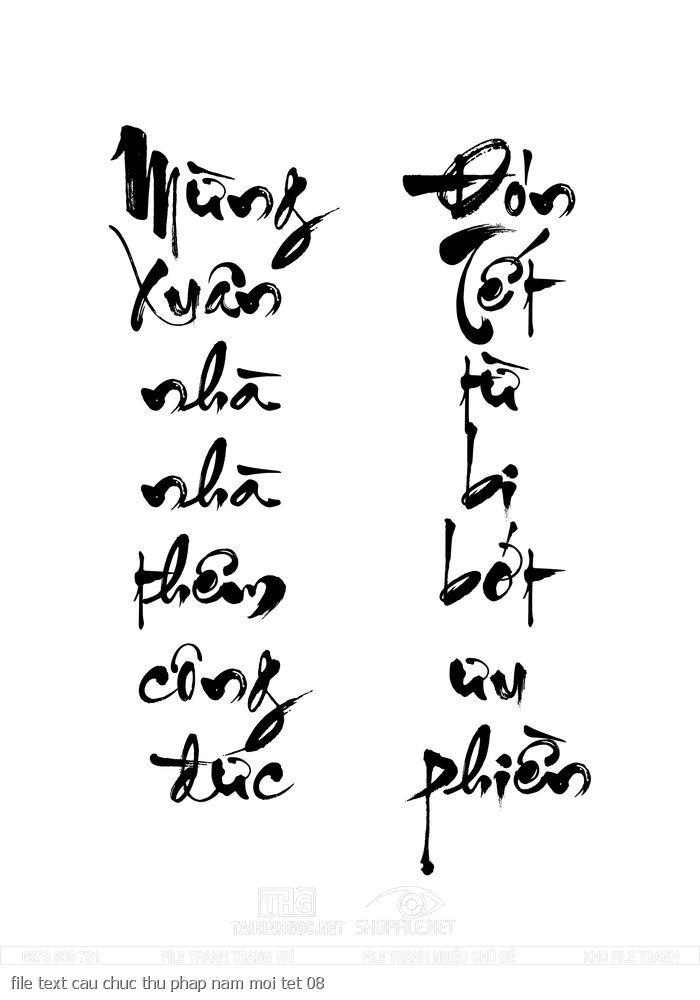 Mừng
Xuân
nhà
nhà
thêm
công
đức
Đón
Tết
từ
bi
bớt
ưu
phiền
THG
TAIHINHGOC.NET
SHOPFILE.NET
FILE TRANH TRANG TRÍ
FILE TRANH NHIỀU CHỦ ĐỀ
KHO FILE TRANH
file text cau chuc thu phap nam moi tet 08